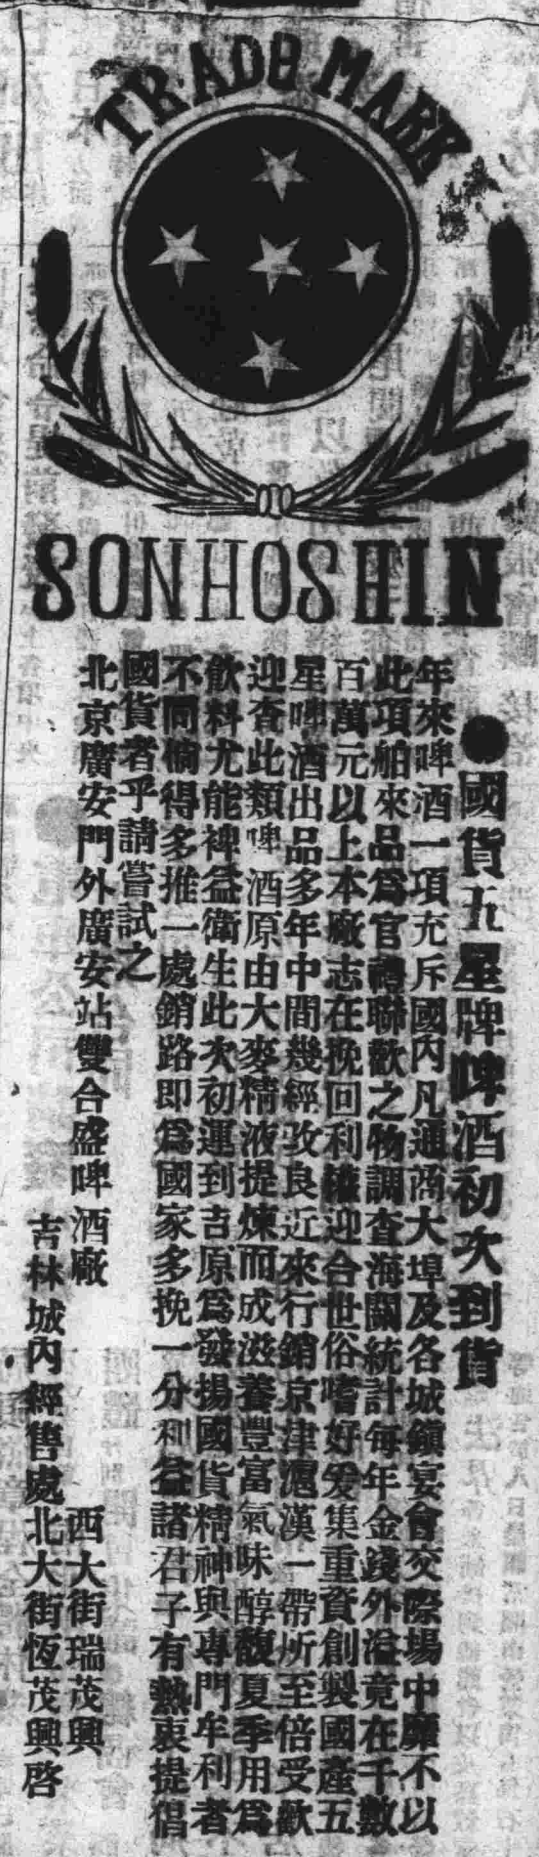 TRADE MARK
SONHOSHIN
●國貨五星牌啤酒初次到貨
年來啤酒一項充斥國內凡通商大埠及各城鎭宴會交際場中靡不以
此項舶來品爲官禮聯歡之物調查海關統計每年金錢外溢竟在千數
百萬元以上本廠志在挽回利權迎合世俗嗜好爰集重資創製國產五
星啤酒出品多年中間幾經改良近來行銷京津滬漢一帶所至倍受歡
迎查此類啤酒原由大麥精液提煉而成滋養豐富氣味醇馥夏季用爲
飲料尤能裨益衛生此次初運到吉原爲發揚國貨精神與專門牟利者
不同倘得多推一處銷路即爲國家多挽一分利益諸君子有熱衷提倡
國貨者乎請嘗試之
北京廣安門外廣安站雙合盛啤酒廠
吉林城內經售處
西大街瑞茂興
北大街恆茂興啓